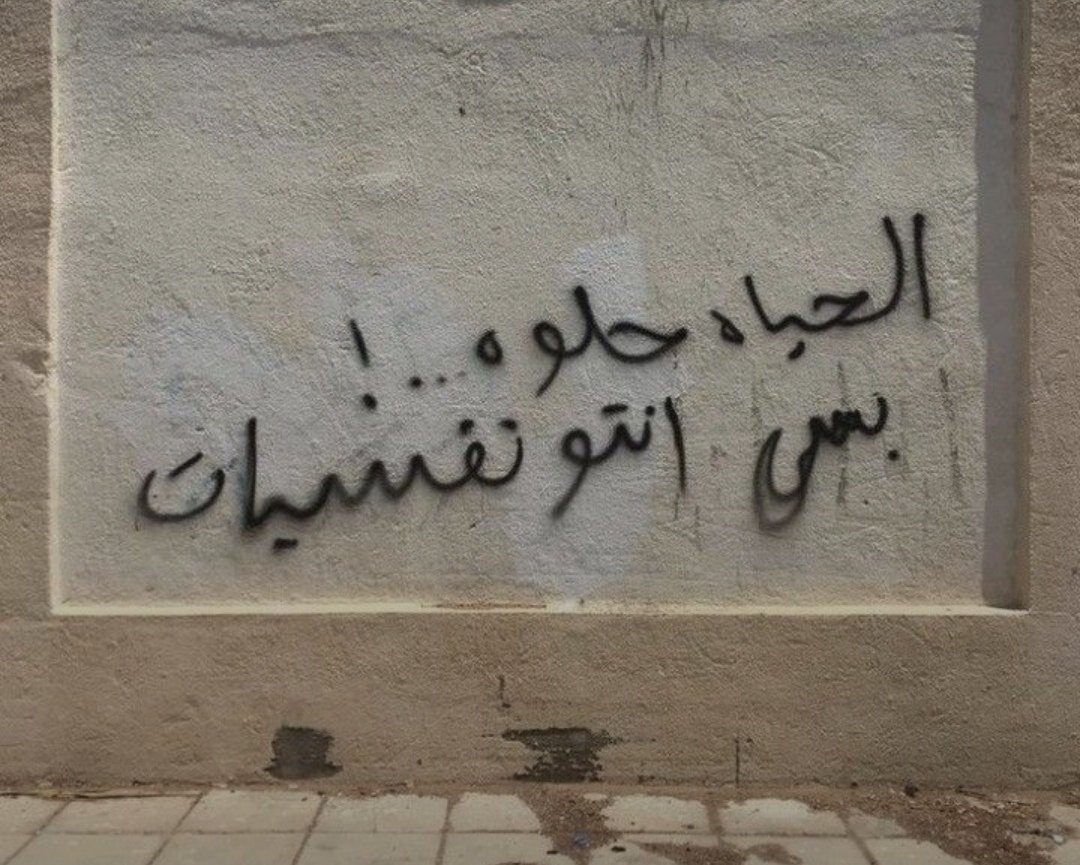 الحياه حلوه ...!
بس انتو نفسيات